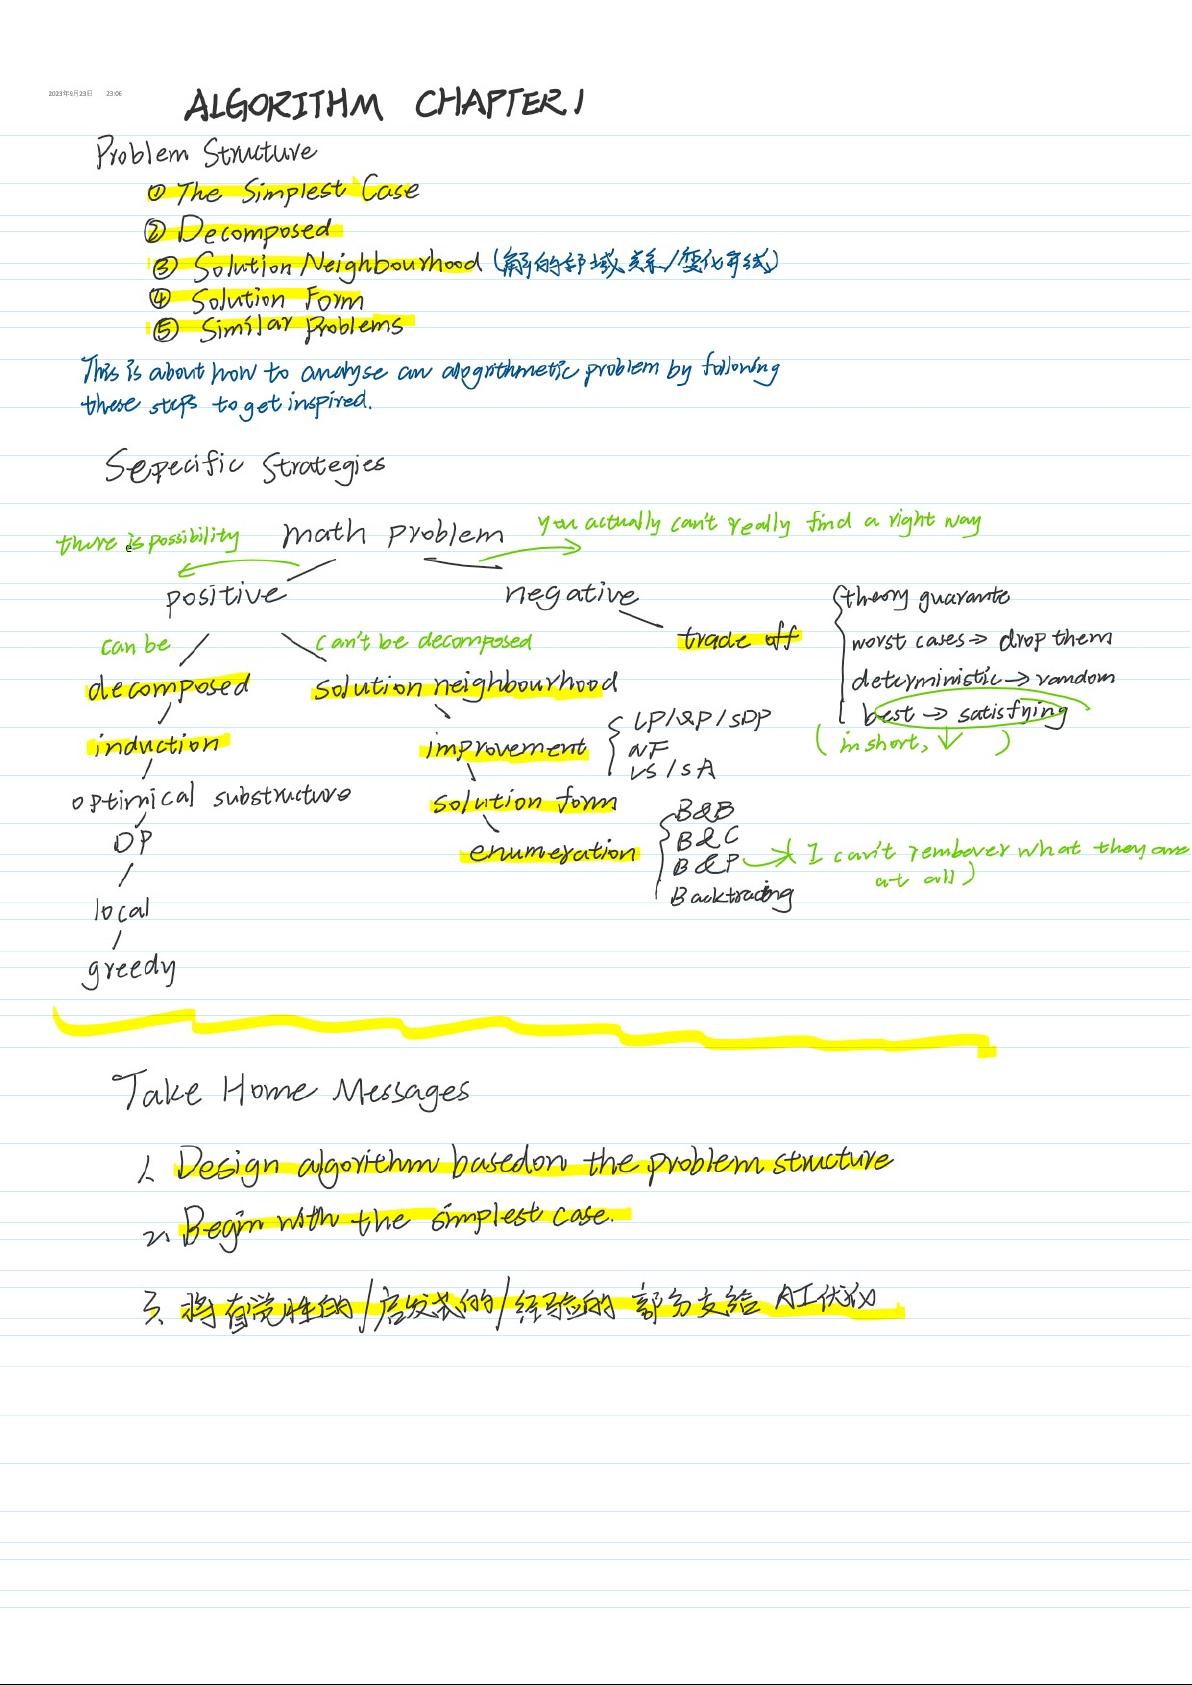 2023年9月23日 23:06
ALGORITHM CHAPTER.1
Problem Structure
① The Simplest Case
② Decomposed
③ Solution Neighbourhood (解的邻域关系/变化
④ Solution Form
⑤ Similar Problems
This is about how to analyse an alogrithmetic problem by following
these steps to get inspired.
Sepecific Strategies
there is possibility
math problem
you actually can't really find a right way
positive
negative
can be
can't be decomposed
trade off
theory guarante
worst cases → drop them
deterministic → random
best → satisfying
(in short, ↓ )
decomposed
solution neighbourhood
induction
improvement
LP/QP/SDP
NF
LS/SA
optimical substructure
solution form
DP
enumeration
B&B
B&C
B&P
Backtracing
I can't rember what they are
at all)
local
greedy
Take Home Messages
1. Design algorithm based on the problem structure
2. Begin with the simplest case.
3. 将直觉性的/启发式的/经验的 部分交给 AI优化